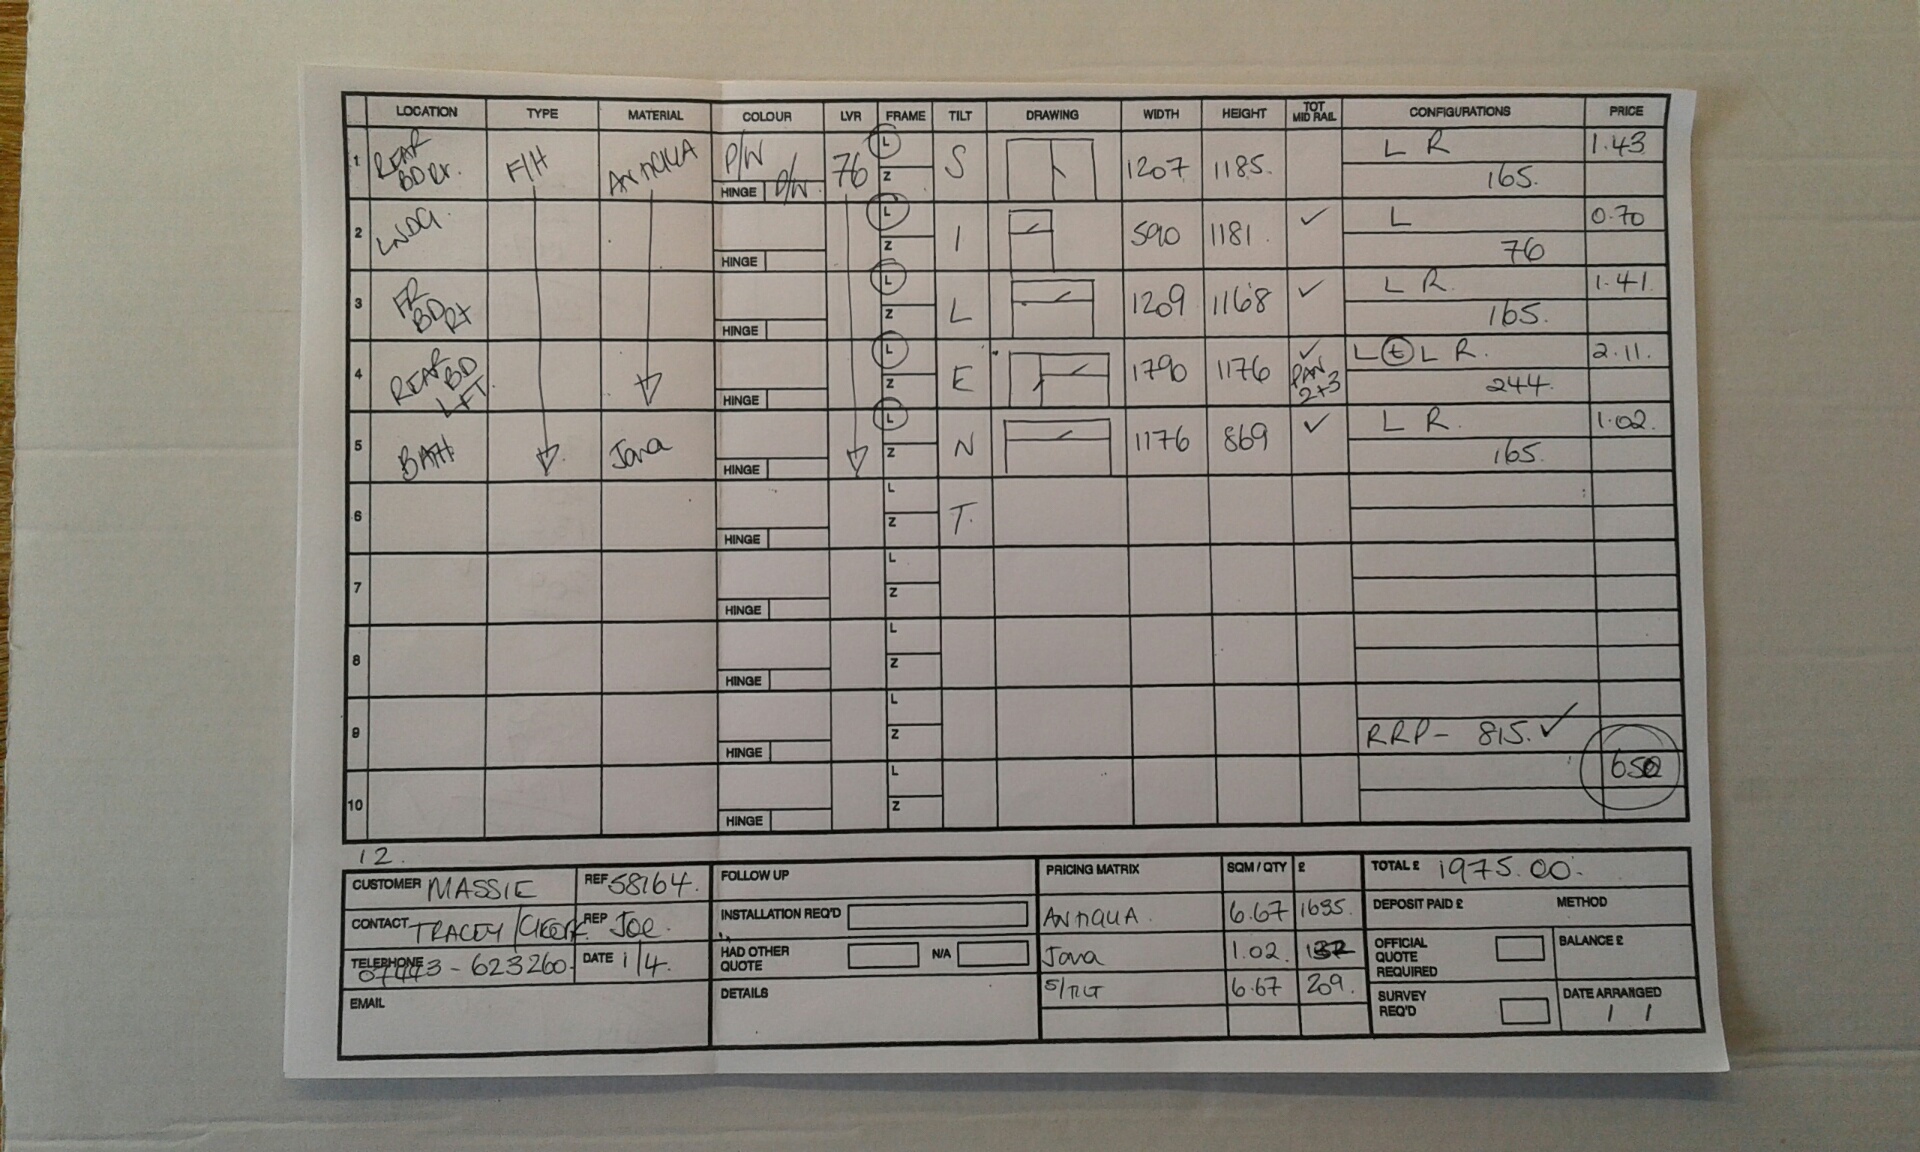 LOCATION TYPE MATERIAL COLOUR LVR FRAME TILT DRAWING WIDTH HEIGHT TOT MID RAIL CONFIGURATIONS PRICE
1 REAR BD RT. F/H ANTIGUA P/W HINGE P/W 76 L Z S 1207 1185. L R 165. 1.43
2 LNDG. HINGE L Z I 590 1181. ✓ L 76 0.70
3 FR BD RT HINGE L Z L 1209 1168 ✓ L R. 165. 1.41
4 REAR BD LFT HINGE L Z E 1790 1176 ✓ PAN 2+3 L t L R. 244. 2.11.
5 BATH Java HINGE L Z N 1176 869 ✓ L R. 165. 1.02.
6 HINGE L Z T.
7 HINGE L Z
8 HINGE L Z
9 HINGE L Z RRP - 815. ✓
10 HINGE L Z
12.
CUSTOMER MASSIE REF 58164.
CONTACT TRACEY / REP Joe.
TELEPHONE 07443-623260. DATE 1/4.
EMAIL
FOLLOW UP
INSTALLATION REQ'D
HAD OTHER QUOTE N/A
DETAILS
PRICING MATRIX SQM / QTY £
ANTIGUA. 6.67 1635.
Java 1.02.
S/TILT 6.67 209.
TOTAL £ 1975.00.
DEPOSIT PAID £ METHOD
OFFICIAL QUOTE REQUIRED BALANCE £
SURVEY REQ'D DATE ARRANGED
/ /